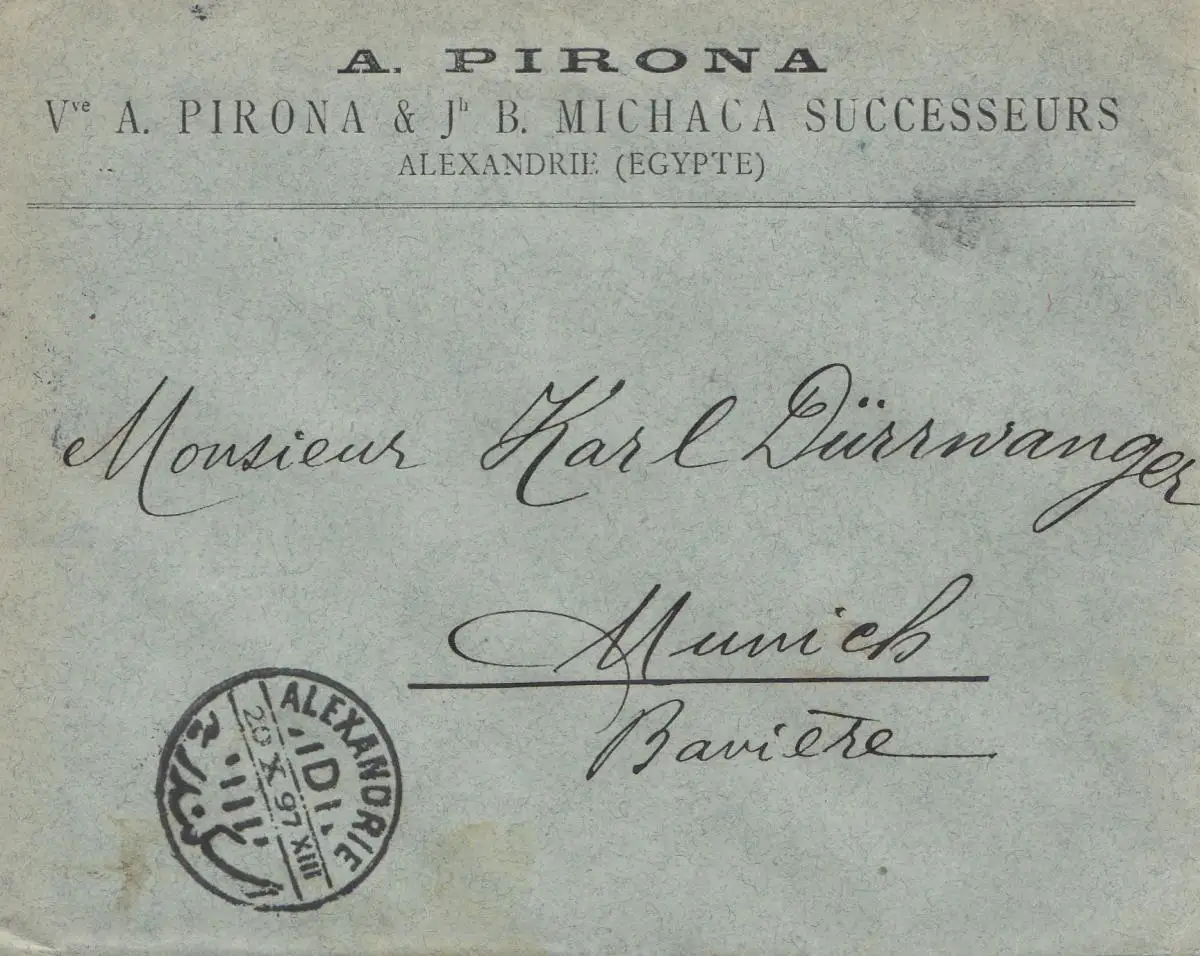 A. PIRONA
Vve A. PIRONA & Jh B. MICHACA SUCCESSEURS
ALEXANDRIE (EGYPTE)
Monsieur Karl Dürrwanger
Munich
Bavière
ALEXANDRIE
D
20 X 97 XIII